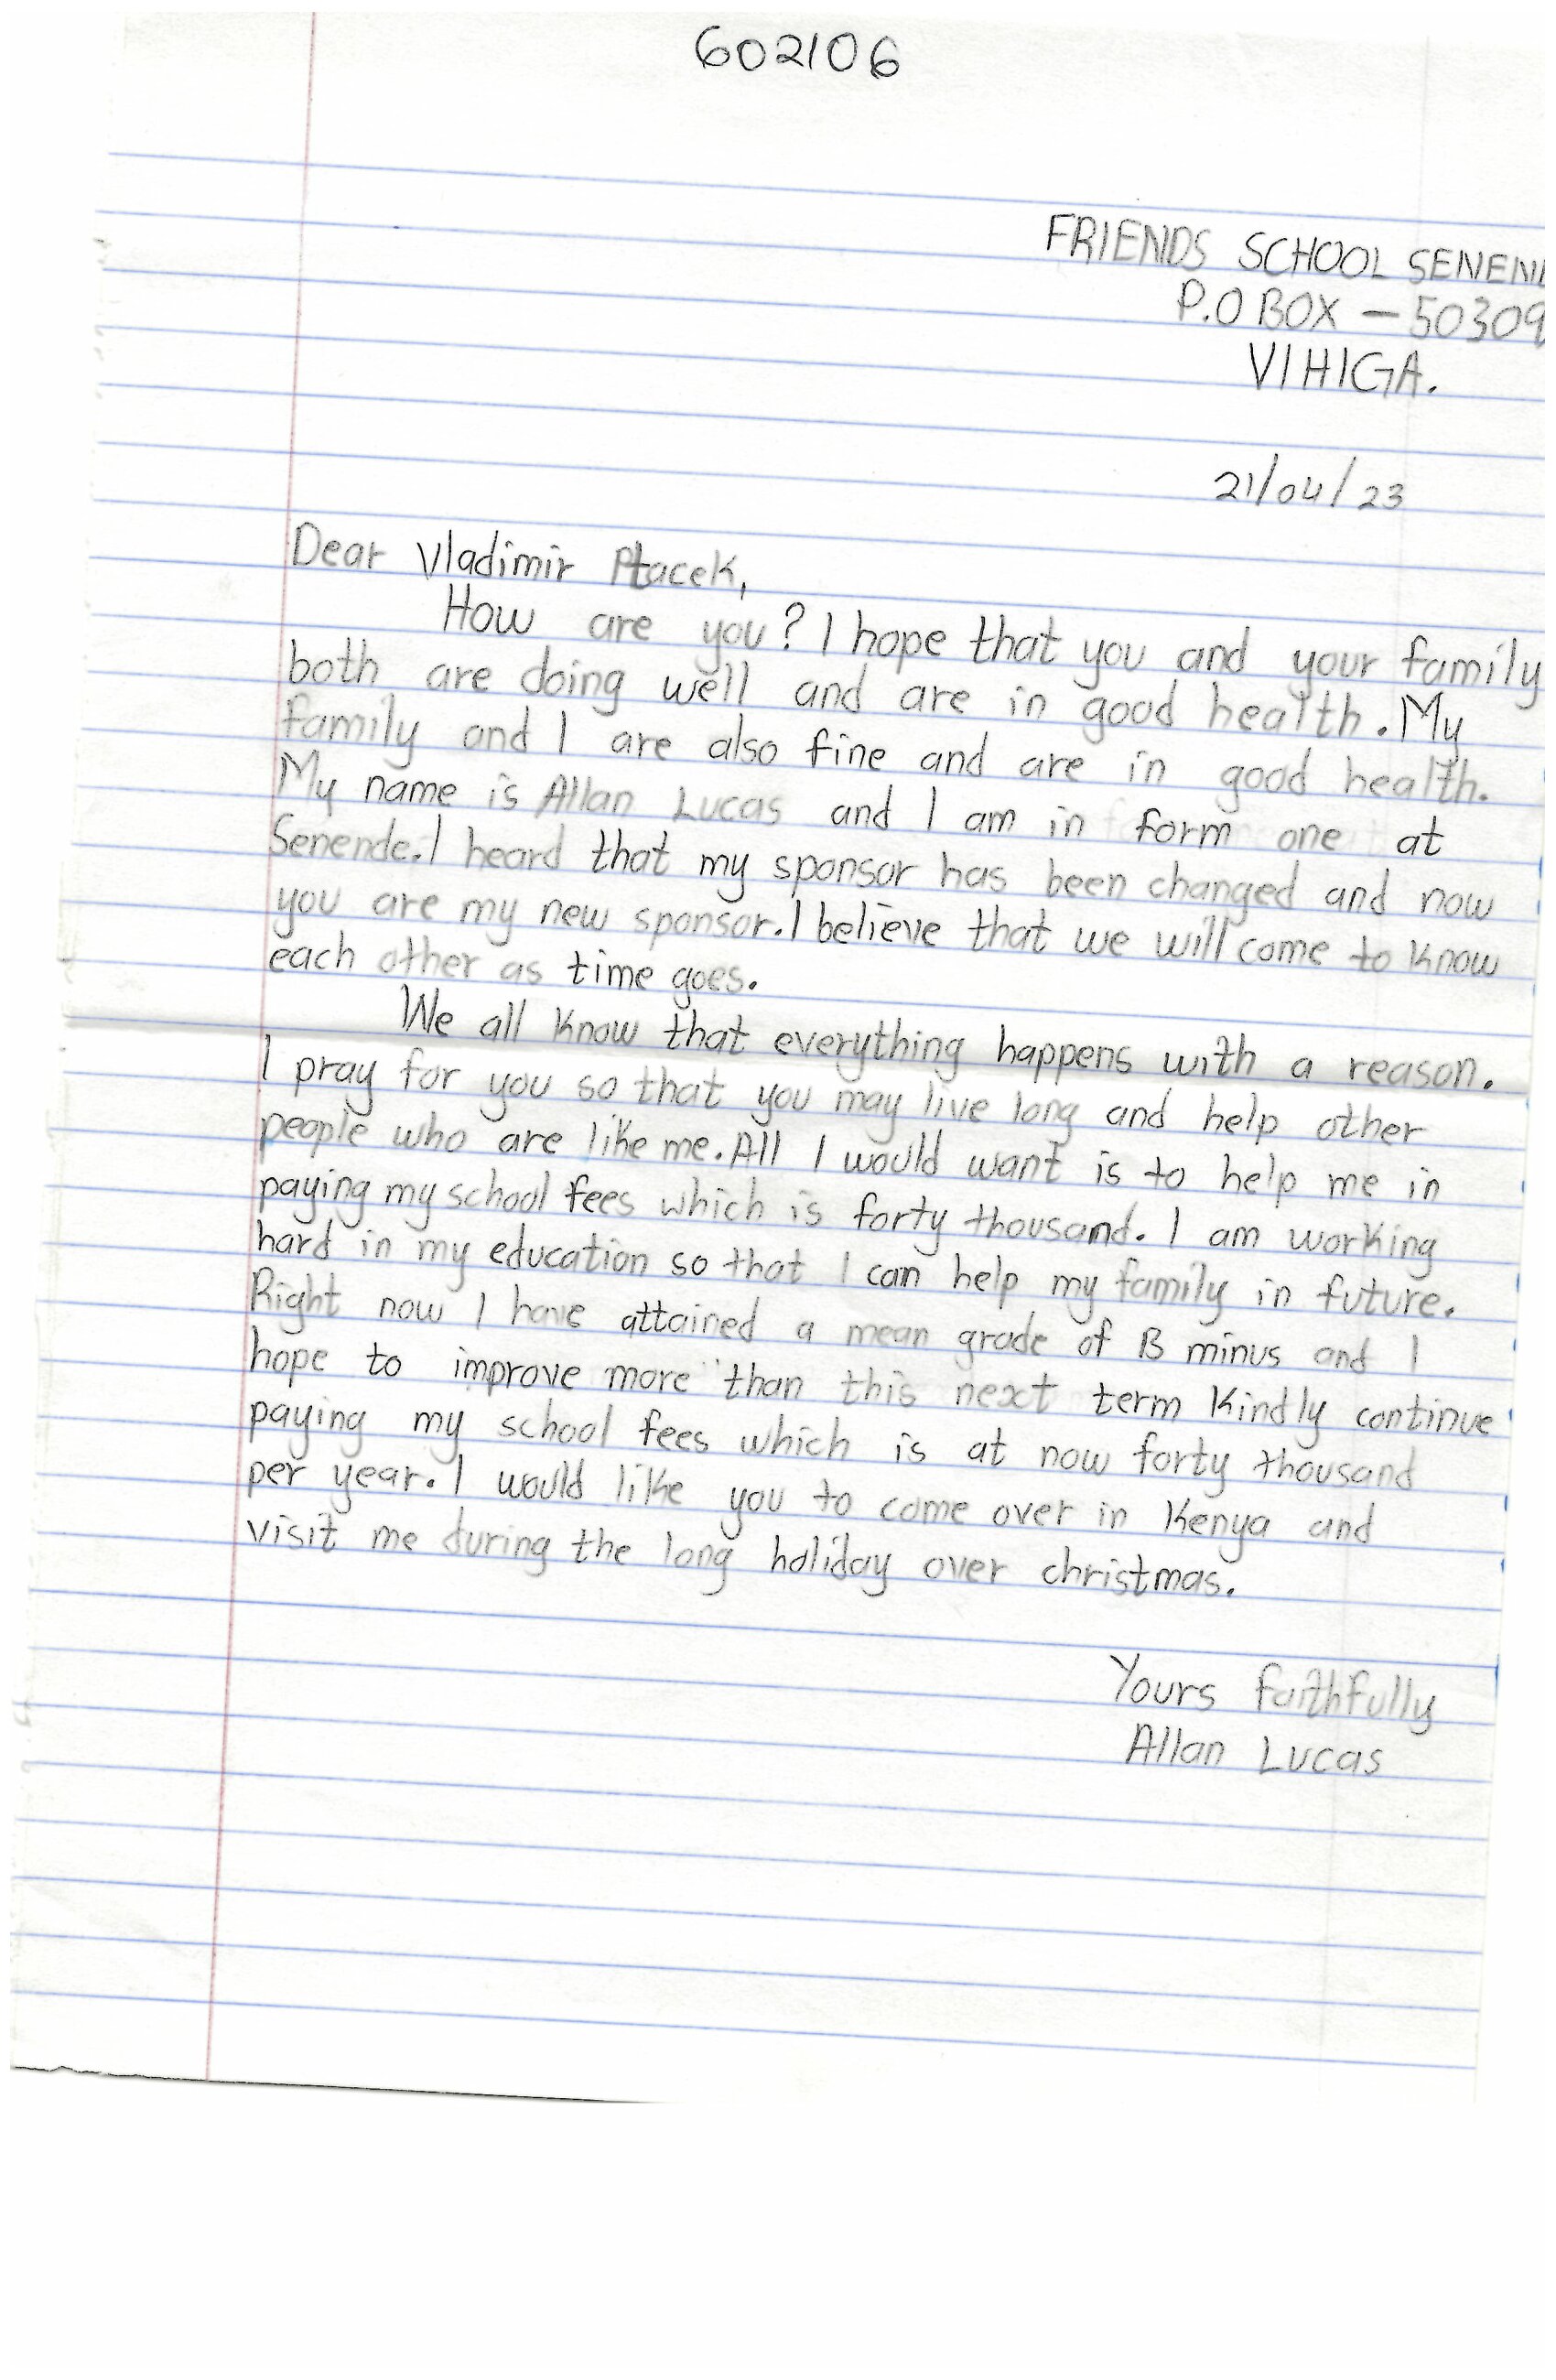 602106
FRIENDS SCHOOL SENEN
P.O BOX - 50309
VIHIGA.
21/04/23
Dear Vladimir Ptacek,
How are you? I hope that you and your family
both are doing well and are in good health. My
family and I are also fine and are in good health.
My name is Allan Lucas and I am in form one at
Senende. I heard that my sponsor has been changed and now
you are my new sponsor. I believe that we will come to know
each other as time goes.
We all know that everything happens with a reason.
I pray for you so that you may live long and help other
people who are like me. All I would want is to help me in
paying my school fees which is forty thousand. I am working
hard in my education so that I can help my family in future.
Right now I have attained a mean grade of B minus and I
hope to improve more than this next term Kindly continue
paying my school fees which is at now forty thousand
per year. I would like you to come over in Kenya and
visit me during the long holiday over christmas.
Yours faithfully
Allan Lucas